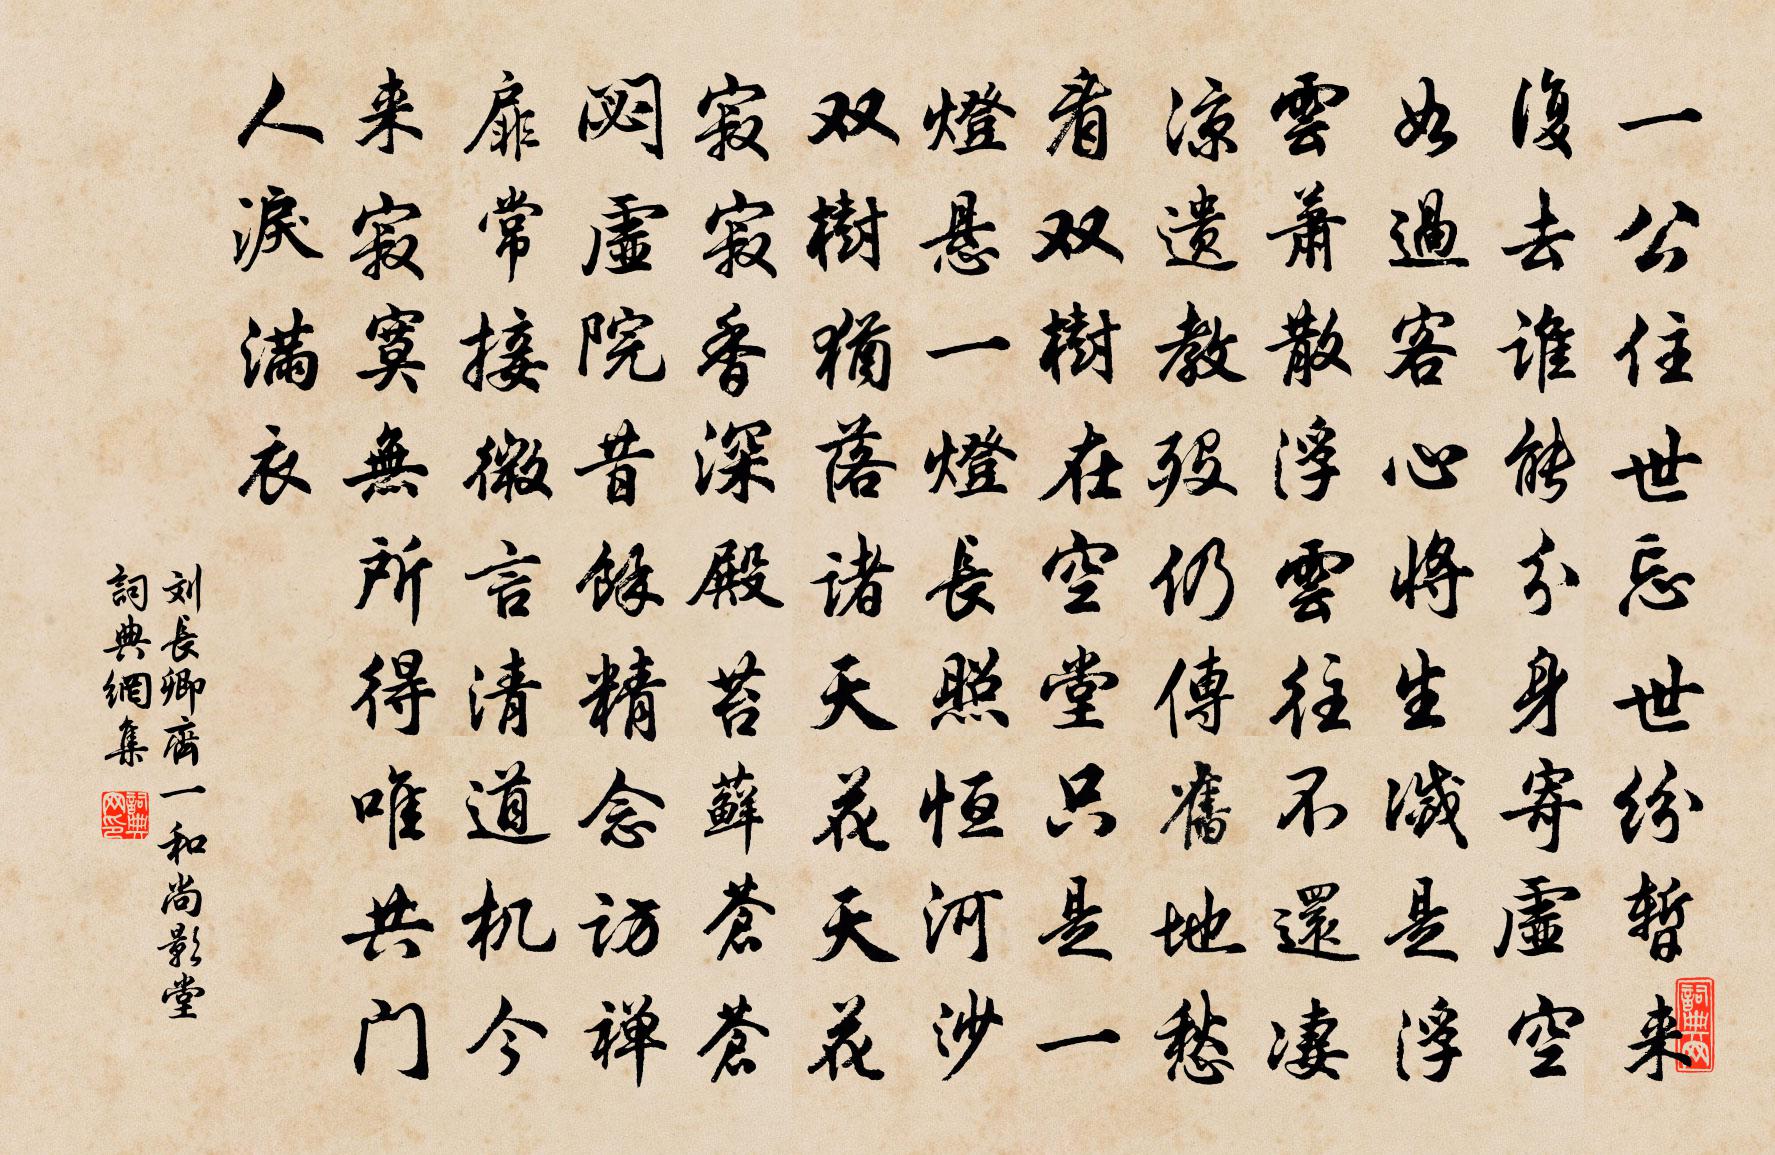 一公住世忘世纷暂来
復去谁能分身寄虚空
如過客心将生滅是浮
雲萧散浮雲往不還凄
凉遗教殁仍傳舊地愁
看双樹在空堂只是一
燈悬一燈長照恒河沙
双樹猶落诸天花天花
寂寂香深殿苔蘚蒼蒼
閟虚院昔餘精念访禅
扉常接微言清道机今
来寂寞無所得唯共门
人淚满衣
刘長卿齊一和尚影堂
詞典網集
詞典网
詞典网印